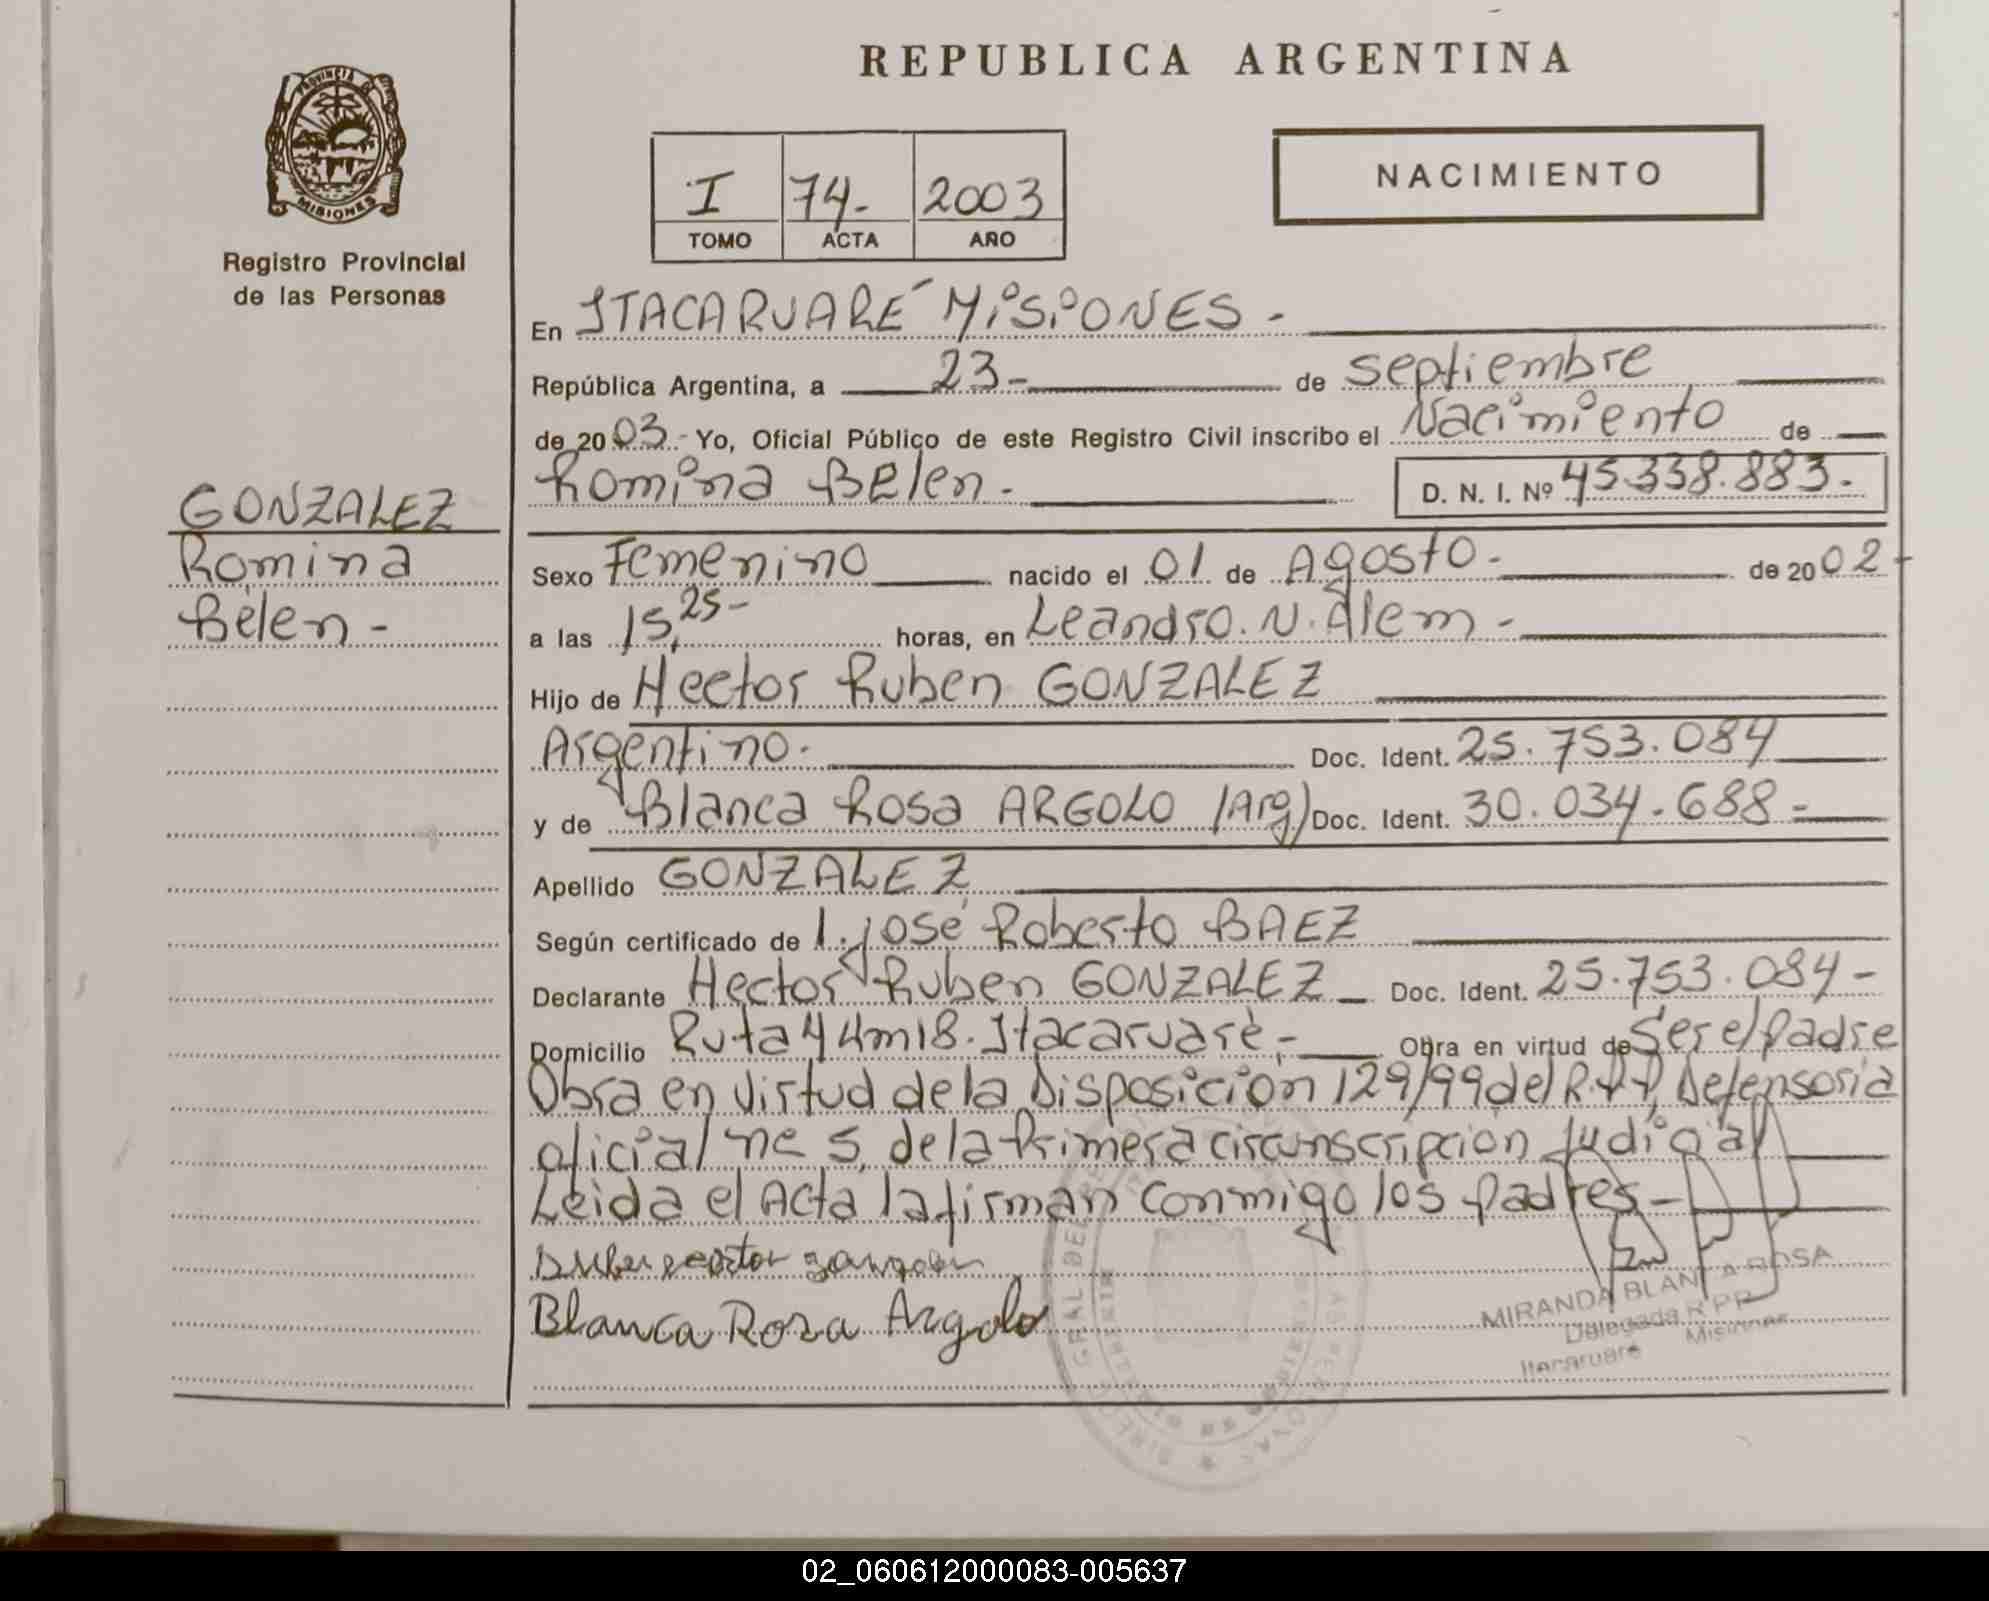 REPUBLICA ARGENTINA
PROVINCIA DE
MISIONES
Registro Provincial
de las Personas
I 74- 2003
TOMO ACTA AÑO
NACIMIENTO
En ITACARUARÉ MISIONES -
República Argentina, a 23- de septiembre
de 2003.- Yo, Oficial Público de este Registro Civil inscribo el Nacimiento de
Romina Belen - D. N. I. Nº 45.338.883.-
GONZALEZ
Romina
Belen -
Sexo Femenino nacido el 01 de Agosto - de 2002-
a las 15,25- horas, en Leandro. N. Alem -
Hijo de Hector Ruben GONZALEZ
Argentino. Doc. Ident. 25.753.084
y de Blanca Rosa ARGOLO (Arg) Doc. Ident. 30.034.688-
Apellido GONZALEZ
Según certificado de 1. José Roberto BAEZ
Declarante Hector Ruben GONZALEZ Doc. Ident. 25.753.084-
Domicilio Ruta 4 Km 18. Itacaruaré - Obra en virtud de Ser el Padre
Obra en virtud de la Disposición 129/99 del R.P.P. Defensoria
oficial nº 5 de la Primera circunscripcion Judicial
Leida el Acta la firman conmigo los Padres -
Blanca Rosa Argolo
MIRANDA BLANCA ROSA
Delegada R.P.P.
Itacaruare Misiones
02_060612000083-005637